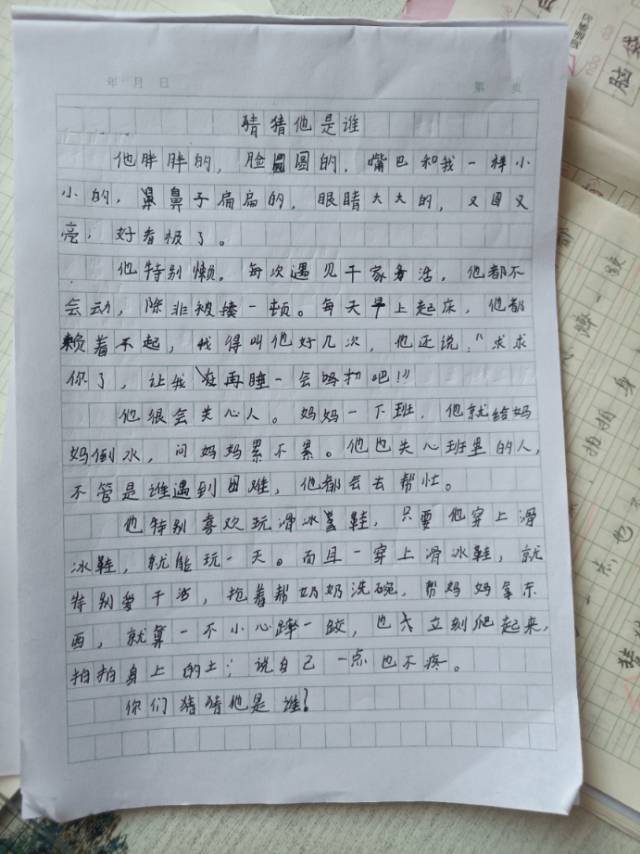 年 月 日 第 页
猜猜他是谁
他胖胖的，脸圆的，嘴巴和我一样小
小的，鼻子扁扁的，眼睛大大的，又圆又
亮，好看极了。
他特别懒，每次遇见干家务活，他都不
会动，除非被揍一顿。每天早上起床，他都
赖着不起，我得叫他好几次，他还说："求求
你了，让我再睡一会吗吧！"
他很会关心人。妈妈一下班，他就给妈
妈倒水，问妈妈累不累。他也关心班里的人，
不管是谁遇到困难，他都会去帮忙。
他特别喜欢玩滑冰鞋，只要他穿上滑
冰鞋，就能玩一天。而且一穿上滑冰鞋，就
特别爱干活，抢着帮奶奶洗碗，帮妈妈拿东
西，就算一不小心蹿一跤，也立刻爬起来，
拍拍身上的土；说自己一点也不疼。
你们猜猜他是谁？